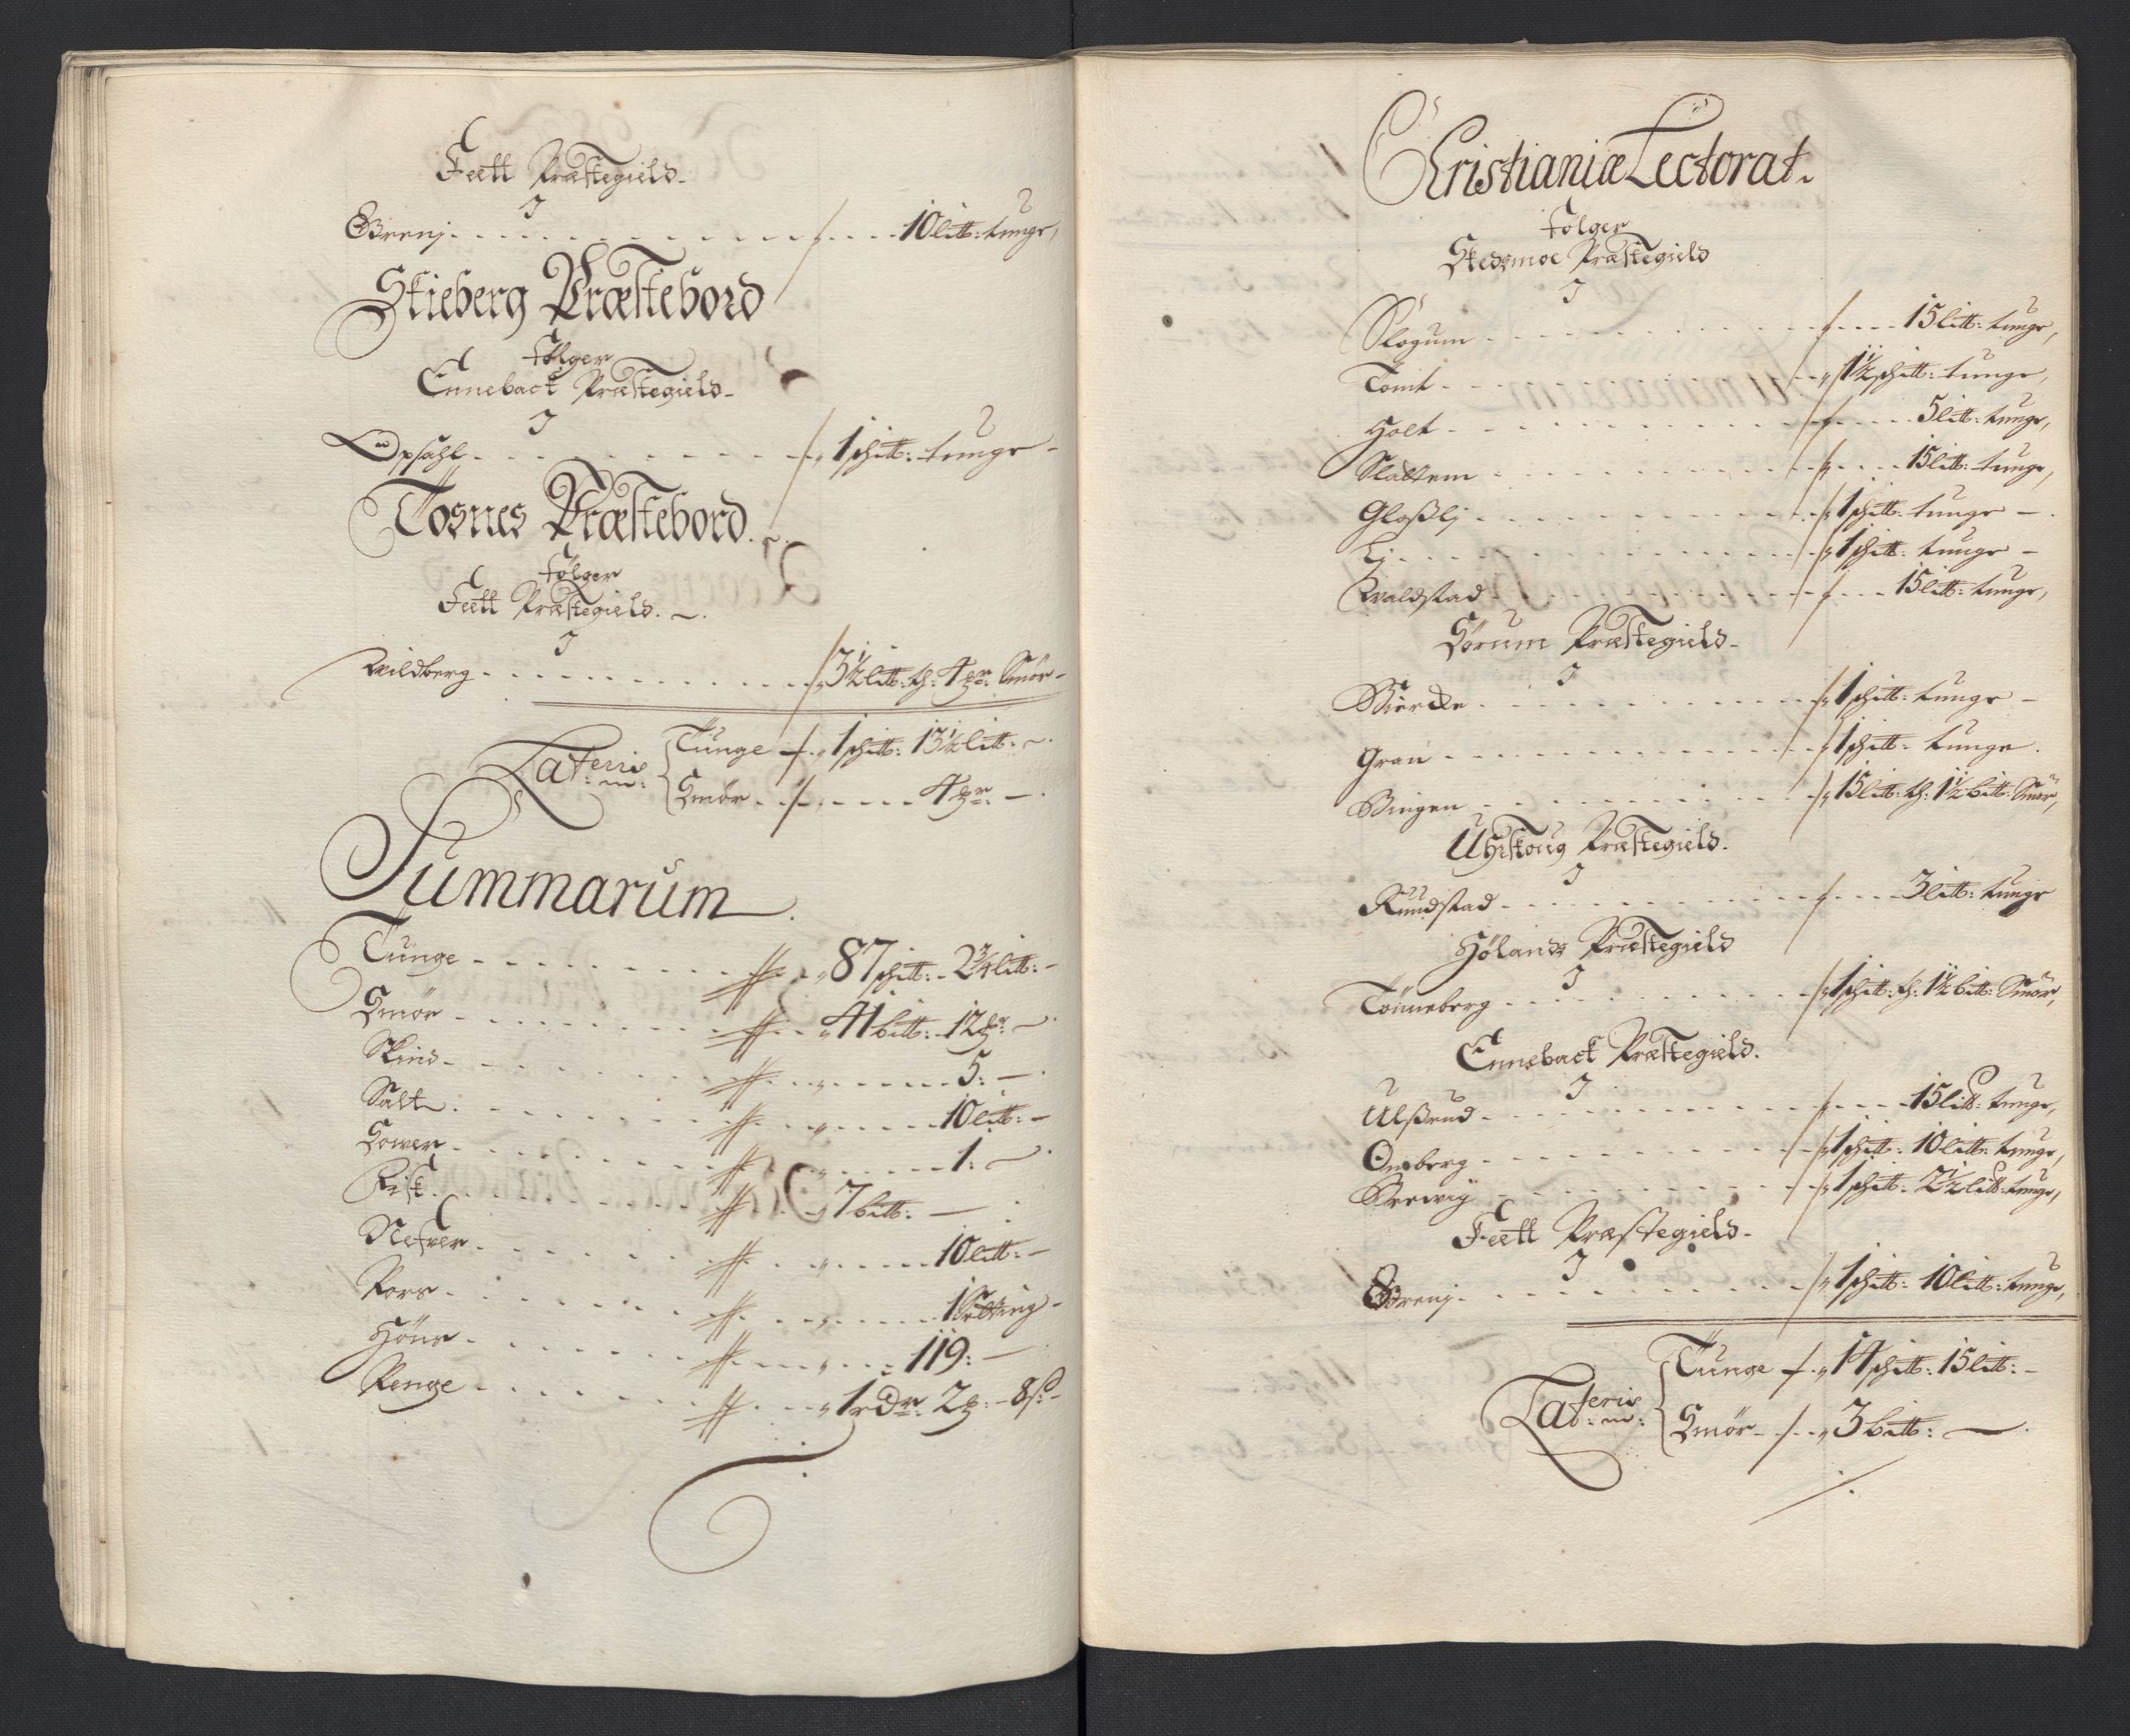 Feett Præstegield
J
Breni 10 litt: tunge,
Skieberg Præstebord
følger
Enneback Præstegield
J
Opsahl 1 schitt: tunge
Tosnes Præstebord
følger
Feett Præstegield
J
Wildberg 3½ litt: th: 4 Smör
Lateris Tunge 1 schitt: 13½ litt:
Smör 4
Summarum
Tunge 87 schitt: 2¾ litt:
Smör 41 bitt: 12
Skind 5:
Salt 10 litt:
Sower 1:
Fisk 7 bitt:
Nefver 10 litt:
Pors 1 Setting
Höns 119:
Penge 1 rdr: 2 8 s:
Christianiæ Lectorat.
følger
Skedsmoe Præstegield
J
Slogum 15 litt: tunge,
Tomt 1½ schitt: tunge,
Holt 5 litt: tunge,
Slattem 15 litt: tunge,
Gloßlj 1 schitt: tunge
Lj 1 schitt: tunge
Qvaldstad 15 litt: tunge,
Sörum Præstegield
J
Biercke 1 schitt: tunge
Gran 1 schitt: tunge
Bingen 15 litt: th: 1½ bitt: Smör,
Uhrskoug Præstegield
J
Rundstad 3 litt: tunge
Hölands Præstegield
J
Tönneberg 1 schitt: th: 1½ bitt: Smör,
Enneback Præstegield
J
Ulßrud 15 litt: tunge,
Omberg 1 schitt: 10 litt: tunge,
Brewig 1 schitt: 2½ litt: tunge,
Feett Præstegield
J
Breni 1 schitt: 10 litt: tunge,
Lateris Tunge 14 schitt: 15 litt:
Smör 3 bitt: